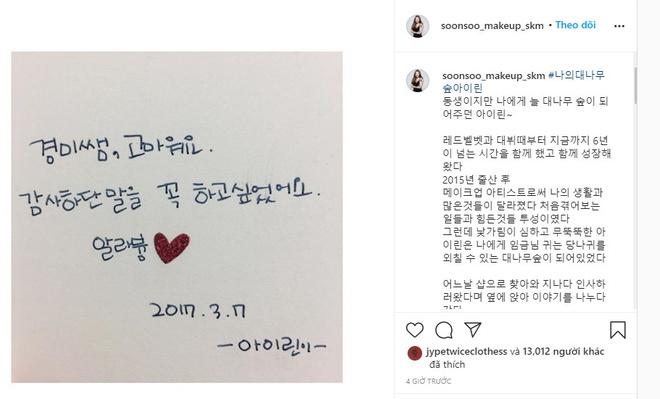 경미쌤, 고마워요.
감사하단 말을 꼭 하고싶었어요.
알라븅
2017.3.7
-아이린이-
soonsoo_makeup_skm • Theo dõi
soonsoo_makeup_skm #나의대나무
숲아이린
동생이지만 나에게 늘 대나무 숲이 되
어주던 아이린~
레드벨벳과 대뷔때부터 지금까지 6년
이 넘는 시간을 함께 했고 함께 성장해
왔다
2015년 출산 후
메이크업 아티스트로써 나의 생활과
많은것들이 달라졌다 처음겪어보는
일들과 힘든것들 투성이였다
그런데 낯가림이 심하고 무뚝뚝한 아
이린은 나에게 임금님 귀는 당나귀를
외칠 수 있는 대나무숲이 되어있었다
어느날 샵으로 찾아와 지나다 인사하
러왔다며 옆에 앉아 이야기를 나누다
갔다
jypetwiceclothess và 13,012 người khác
đã thích
4 GIỜ TRƯỚC